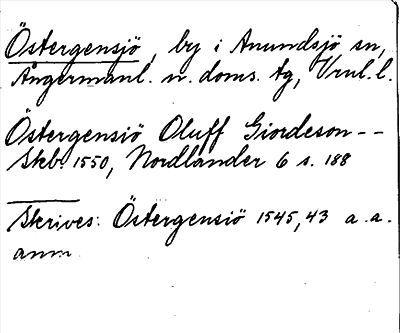 Östergensjö, by i Anundsjö sn,
Ångermanl. n. doms. tg, Vnl. l.
Östergensiö Oluff Giordeson--
Skb. 1550, Nordlander 6 s. 188
Skrives: Östergensiö 1545, 43 a. a.
anm